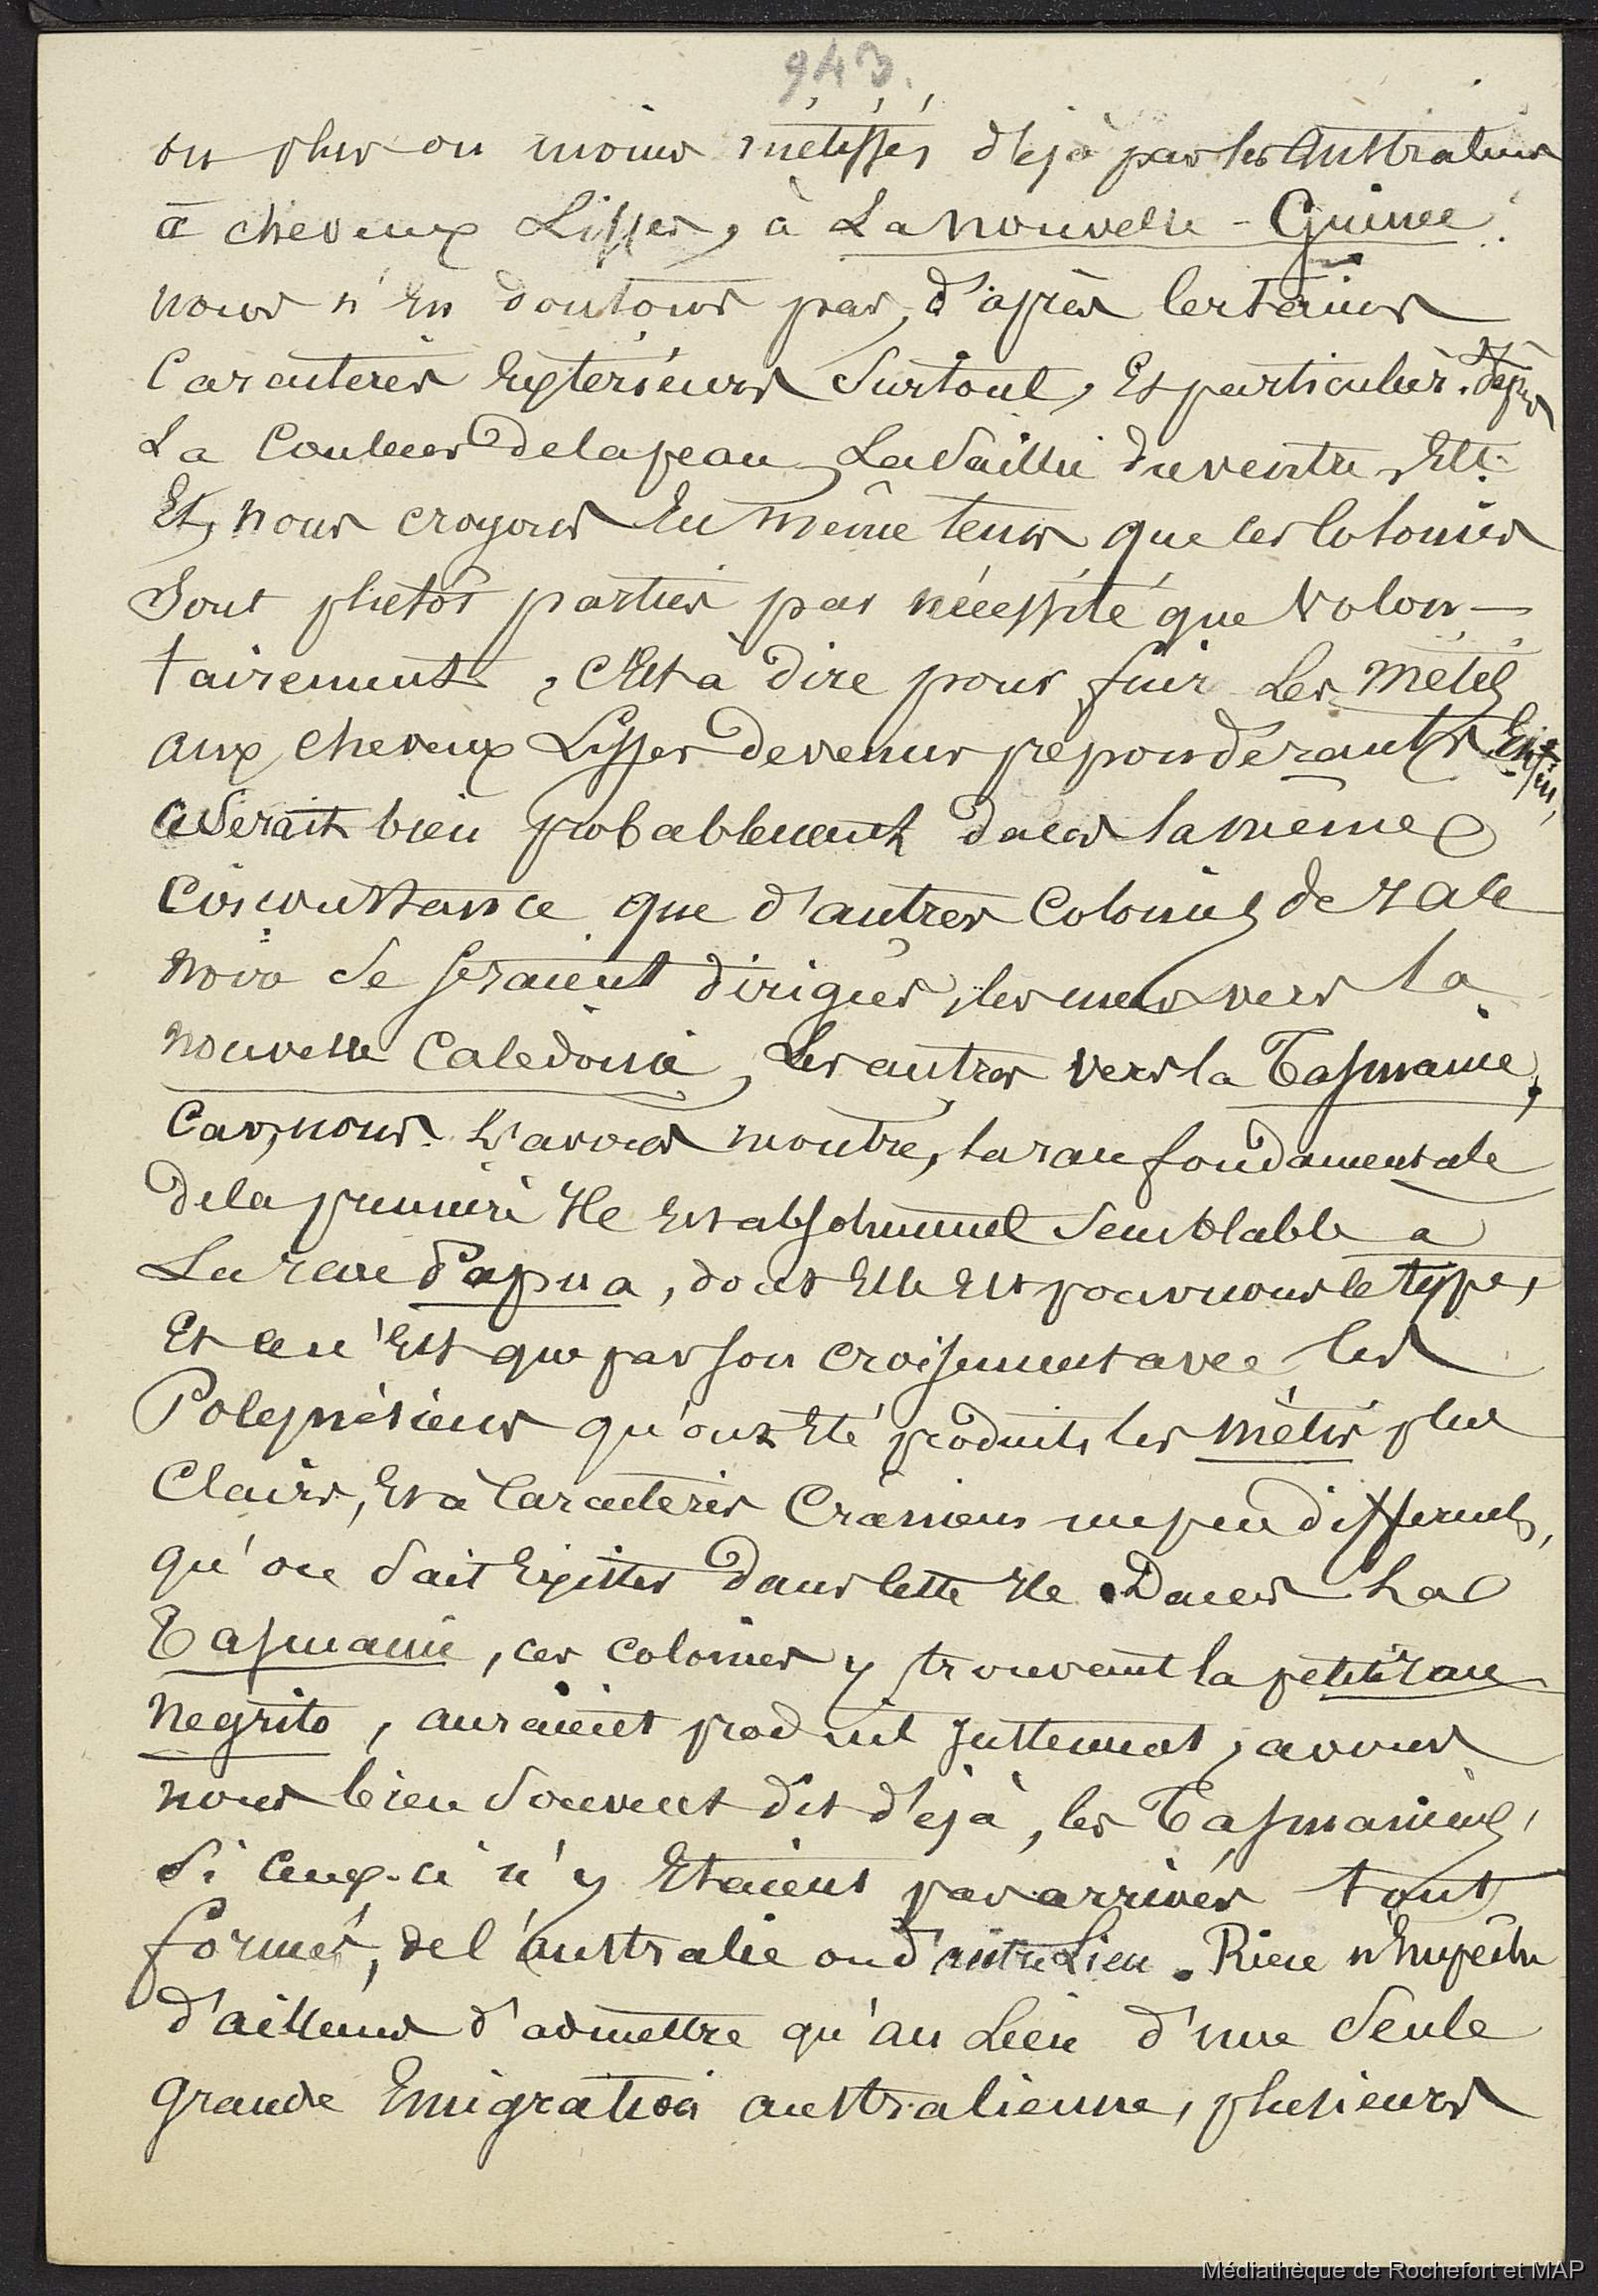 943.
ou plus ou moins métissés déjà par les Australiens
à cheveux Lisses, à La Nouvelle-Guinée.
nous n'en doutons pas, d'après certains
Caractères Extérieurs Surtout, Et particulièr. d'après
La Couleur de la peau, La Saillie du ventre, Etc.
Et, nous croyons En même tems que les Colonies
Sont plutôt parties par nécessité que Volon-
tairement, c'Est à dire pour fuir Les Métis
aux cheveux Lisses devenus prépondérants. Enfin,
ce Serait bien probablement dans la même
Circonstance que d'autres Colonies de race
noire Se Seraient dirigées, les unes vers la
nouvelle Calédonie, Les autres vers la Tasmanie;
Car, nous L'avons montré, la race fondamentale
de la première Ile Est absolument Semblable à
La race Papua, dont Elle Est pour nous le type,
Et ce n'Est que par Son croisement avec les
Polynésiens qu'ont Eté produits les Métis plus
Clairs, Et à Caractères Crâniens un peu différents,
qu'on Sait Exister dans cette Ile. Dans La
Tasmanie, ces colonies y trouvant la petite race
Negrito, auraient produit justement, avons
nous bien Souvent dit déjà, les Tasmaniens,
Si ceux-ci n'y Etaient pas arrivés tout
formés, de l'australie ou d'autre Lieu. Rien n'Empêche
d'ailleurs d'admettre qu'au Lieu d'une Seule
grande Emigration australienne, plusieurs
Médiathèque de Rochefort et MAP